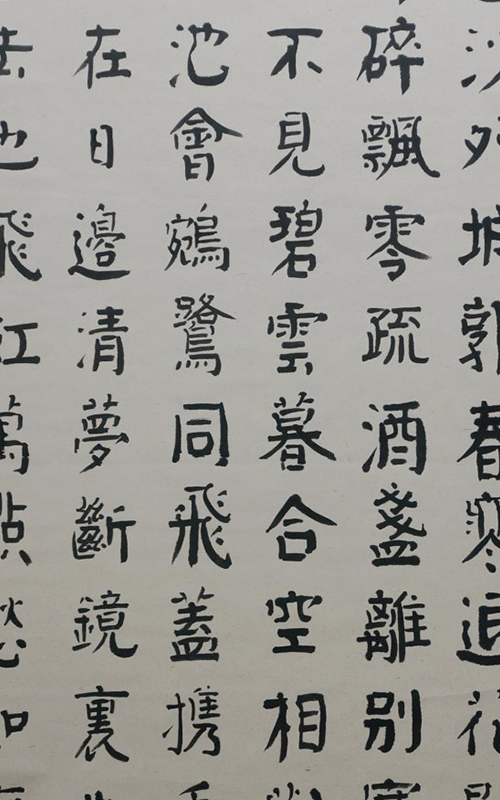 沙外城郭春寒退花
碎飄零疏酒盞離別
不見碧雲暮合空相
池會鵷鷺同飛蓋携
在日邊清夢斷鏡裏
去也飛紅萬點愁如